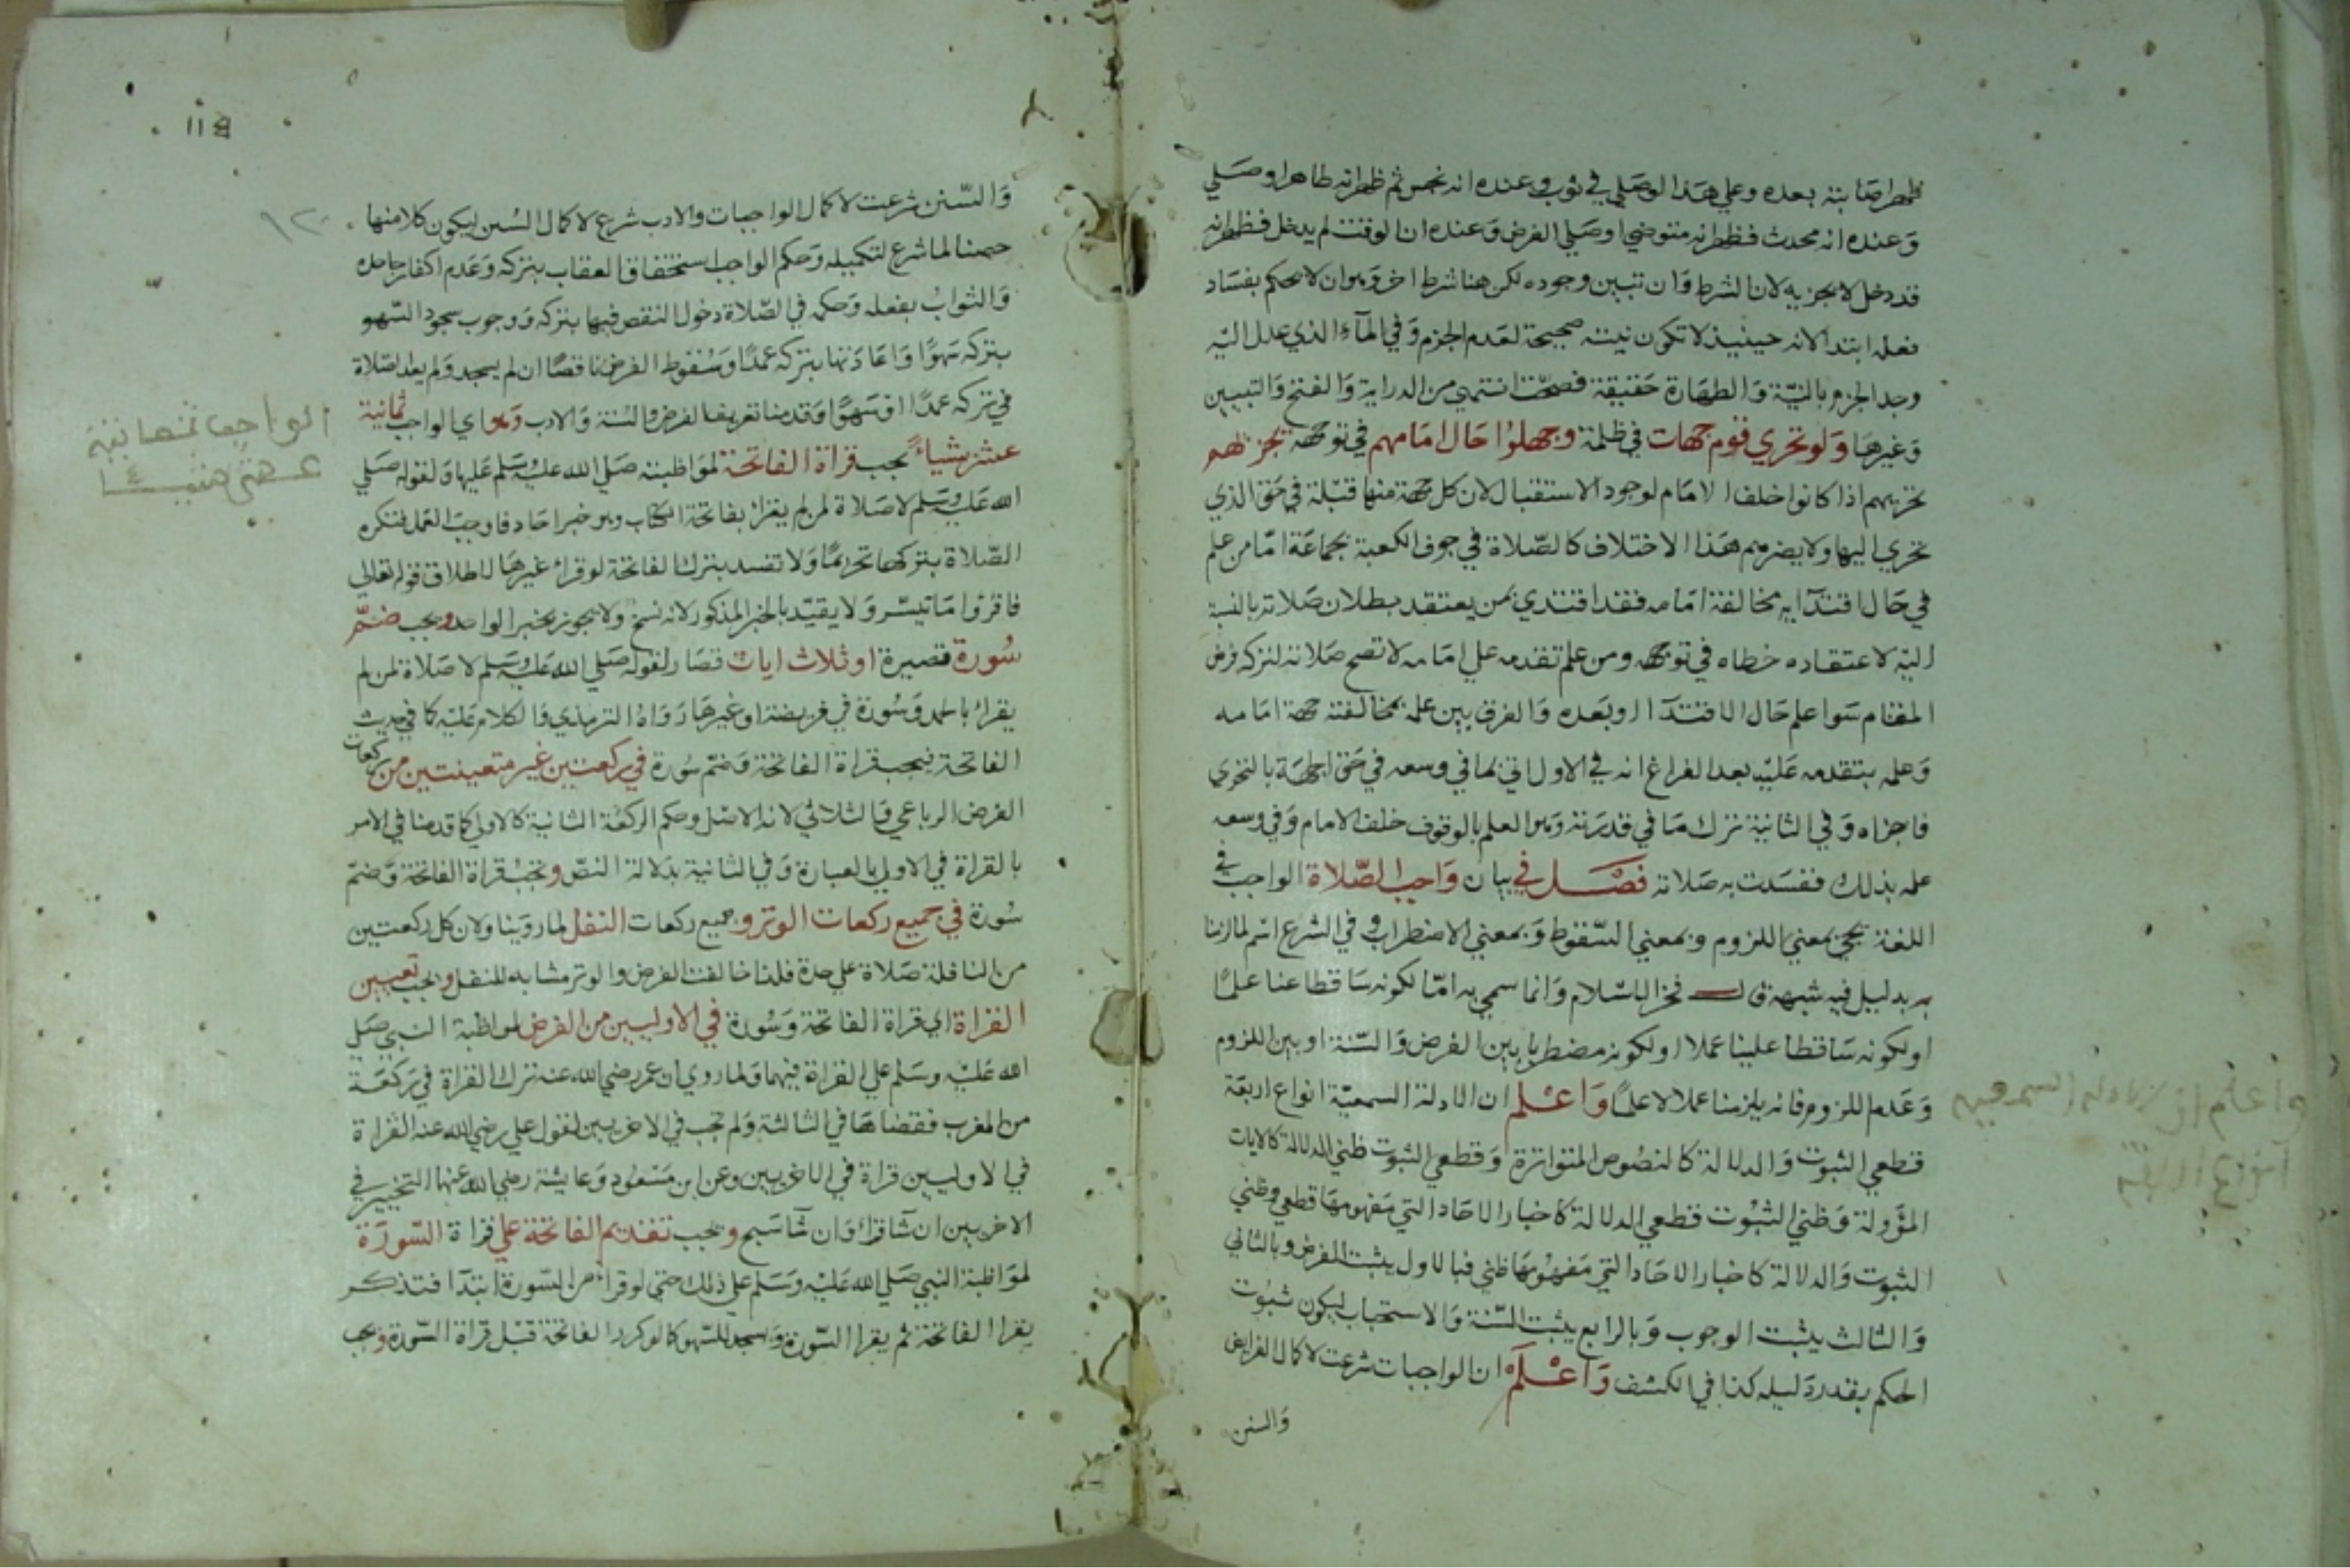 فظهر اصابته بعده وعلي هذا لوصلي في ثوب وعنده انه نجس ثم ظهر انه طاهر او صلي
وعنده انه محدث فظهر انه متوضي او صلي الفرض وعنده ان الوقت لم يدخل فظهر انه
قد دخل لا يجزيه لان الشرط وان تبين وجوده لكن هنا شرط اخر وهو ان لا يحكم بفساد
فعله ابتدا لانه حينيذ لا تكون نيته صحيحة لعدم الجزم وفي المآء الذي عدل اليه
وجد الجزم بالنية والطهارة حقيقة فصحت انتهي من الدراية والفتح والتبيين
وغيرها ولو تحري قوم جهات في ظلمة وجهلوا حال امامهم في توجهه تجزئهم
تحريهم اذا كانوا خلف الامام لوجود الاستقبال لان كل جهة منها قبلة في حق الذي
تحري اليها ولا يضرهم هذا الاختلاف كالصلاة في جوف الكعبة بجماعة اما من علم
في حال اقتدايه مخالفة امامه فقد اقتدي بمن يعتقد بطلان صلاته بالنسبة
اليه لاعتقاده خطاه في توجهه ومن علم تقدمه علي امامه لا تصح صلاته لتركه فرض
المقام سوا علم حال الاقتدآ او بعده والفرق بين علمه بمخالفته جهة امامه
وعلمه بتقدمه عليه بعد الفراغ انه في الاول اتي بما في وسعه في حق الجهة بالتحري
فاجزاه وفي الثانية ترك ما في قدرته وهو العلم بالوقوف خلف الامام وفي وسعه
علمه بذلك ففسدت به صلاته فصل في بيان واجب الصلاة الواجب في
اللغة يجئ بمعني اللزوم وبمعني السقوط وبمعني الاضطراب وفي الشرع اسم لما لزمنا
به بدليل فيه شبهة قال فخر الاسلام وانما سمي به اما لكونه ساقطا عنا علما
او لكونه ساقطا علينا عملا او لكونه مضطربا بين الفرض والسنة او بين اللزوم
وعدم اللزوم فانه يلزمنا عملا لا علما واعلم ان الادلة السمعية انواع اربعة
قطعي الثبوت والدلالة كالنصوص المتواترة وقطعي الثبوت ظني الدلالة كالايات
المؤولة وظني الثبوت قطعي الدلالة كاخبار الاحاد التي مفهومها قطعي وظني
الثبوت والدلالة كاخبار الاحاد التي مفهومها ظني فبالاول يثبت الفرض وبالثاني
والثالث يثبت الوجوب وبالرابع يثبت السنة والاستحباب ليكون ثبوت
الحكم بقدر دليله كذا في الكشف واعلم ان الواجبات شرعت لاكمال الفرايض
والسنن
واعلم ان الادلة السمعيه
انواع اربعة
والسنن شرعت لاكمال الواجبات والادب شرع لاكمال السنن ليكون كلا منها
حصنا لما شرع لتكميله وحكم الواجب استحقاق العقاب بتركه وعدم اكفار جاحده
والثواب بفعله وحكمه في الصلاة دخول النقص فيها بتركه ووجوب سجود السهو
بتركه سهوا واعادتها بتركه عمدا وسقوط الفرض ناقصا ان لم يسجد ولم يعد الصلاة
في تركه عمدا او سهوا وقدمنا تعريف الفرض والسنة والادب وهو اي الواجب ثمانية
عشر شياء يجب قراة الفاتحة لمواظبته صلي الله عليه وسلم عليها ولقوله صلي
الله عليه وسلم لا صلاة لمن لم يقرا بفاتحة الكتاب وهو خبر احاد فاوجب العمل فتكره
الصلاة بتركها تحريما ولا تفسد بترك الفاتحة لو قرا غيرها لاطلاق قوله تعالي
فاقرؤا ما تيسر ولا يقيد بالخبر المذكور لانه نسخ ولا يجوز بخبر الواحد ويجب ضم
سورة قصيرة او ثلاث ايات قصار لقوله صلي الله عليه وسلم لا صلاة لمن لم
يقرا بالحمد وسورة في فريضة او غيرها رواه الترمذي والكلام عليه كما في حديث
الفاتحة فيجب قراة الفاتحة وضم سورة في ركعتين غير متعينتين من ركعات
الفرض الرباعي والثلاثي لانه الاصل وحكم الركعة الثانية كالاولي كما قدمنا في الامر
بالقراة في الاولي بالعبارة وفي الثانية بدلالة النص وتجب قراة الفاتحة وضم
سورة في جميع ركعات الوتر وجميع ركعات النفل لما روينا ولان كل ركعتين
من النافلة صلاة علي حدة فلذا خالفت الفرض والوتر مشابه للنفل ويجب تعيين
القراة اي قراة الفاتحة وسورة في الاوليين من الفرض لمواظبة النبي صلي
الله عليه وسلم علي القراة فيهما ولما روي ان عمر رضي الله عنه ترك القراة في ركعة
من المغرب فقضاها في الثالثة ولم تجب في الاخريين لقول علي رضي الله عنه القراة
في الاوليين قراة في الاخريين وعن ابن مسعود وعايشة رضي الله عنها التخيير في
الاخريين ان شآ قرا وان شآ سبح ويجب تقديم الفاتحة علي قراة السورة
لمواظبة النبي صلي الله عليه وسلم علي ذلك حتي لو قرا من السورة ابتدآ فتذكر
يقرا الفاتحة ثم يقرا السورة ويسجد للسهو كما لو كرر الفاتحة قبل قراة السورة ويجب
الواجب ثمانية
عشر شيا